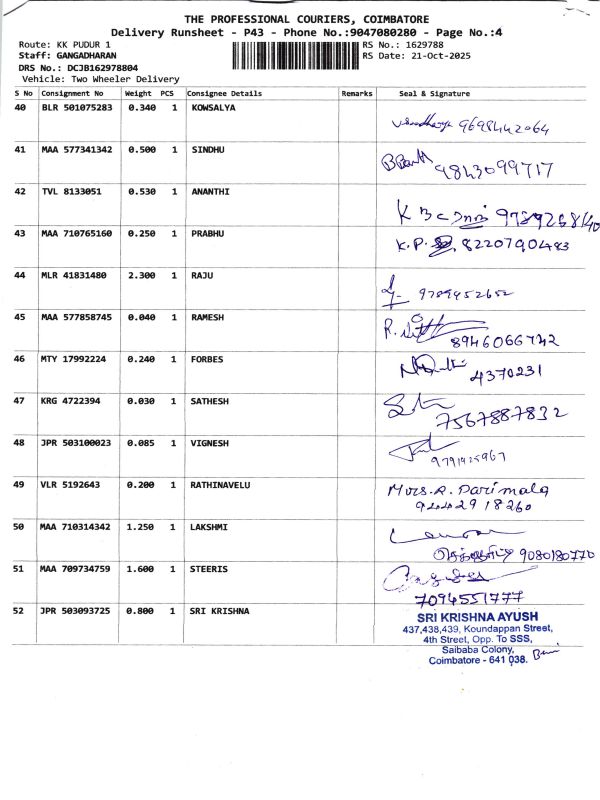 THE PROFESSIONAL COURIERS, COIMBATORE
Delivery Runsheet - P43 - Phone No.:9047080280 - Page No.:4
Route: KK PUDUR 1 RS No.: 1629788
Staff: GANGADHARAN RS Date: 21-Oct-2025
DRS No.: DCJB162978804
Vehicle: Two Wheeler Delivery
S No Consignment No Weight PCS Consignee Details Remarks Seal & Signature
40 BLR 501075283 0.340 1 KOWSALYA
9698442064
41 MAA 577341342 0.500 1 SINDHU
9843099717
42 TVL 8133051 0.530 1 ANANTHI
9789268140
43 MAA 710765160 0.250 1 PRABHU
K.P. 8220790483
44 MLR 41831480 2.300 1 RAJU
9789952652
45 MAA 577858745 0.040 1 RAMESH
8946066742
46 MTY 17992224 0.240 1 FORBES
4370231
47 KRG 4722394 0.030 1 SATHESH
7567887832
48 JPR 503100023 0.085 1 VIGNESH
9791925967
49 VLR 5192643 0.200 1 RATHINAVELU
Mrs. R. Parimala
9442918260
50 MAA 710314342 1.250 1 LAKSHMI
9080180770
51 MAA 709734759 1.600 1 STEERIS
7094551777
52 JPR 503093725 0.800 1 SRI KRISHNA
SRI KRISHNA AYUSH
437,438,439, Koundappan Street,
4th Street, Opp. To SSS,
Saibaba Colony,
Coimbatore - 641 038.